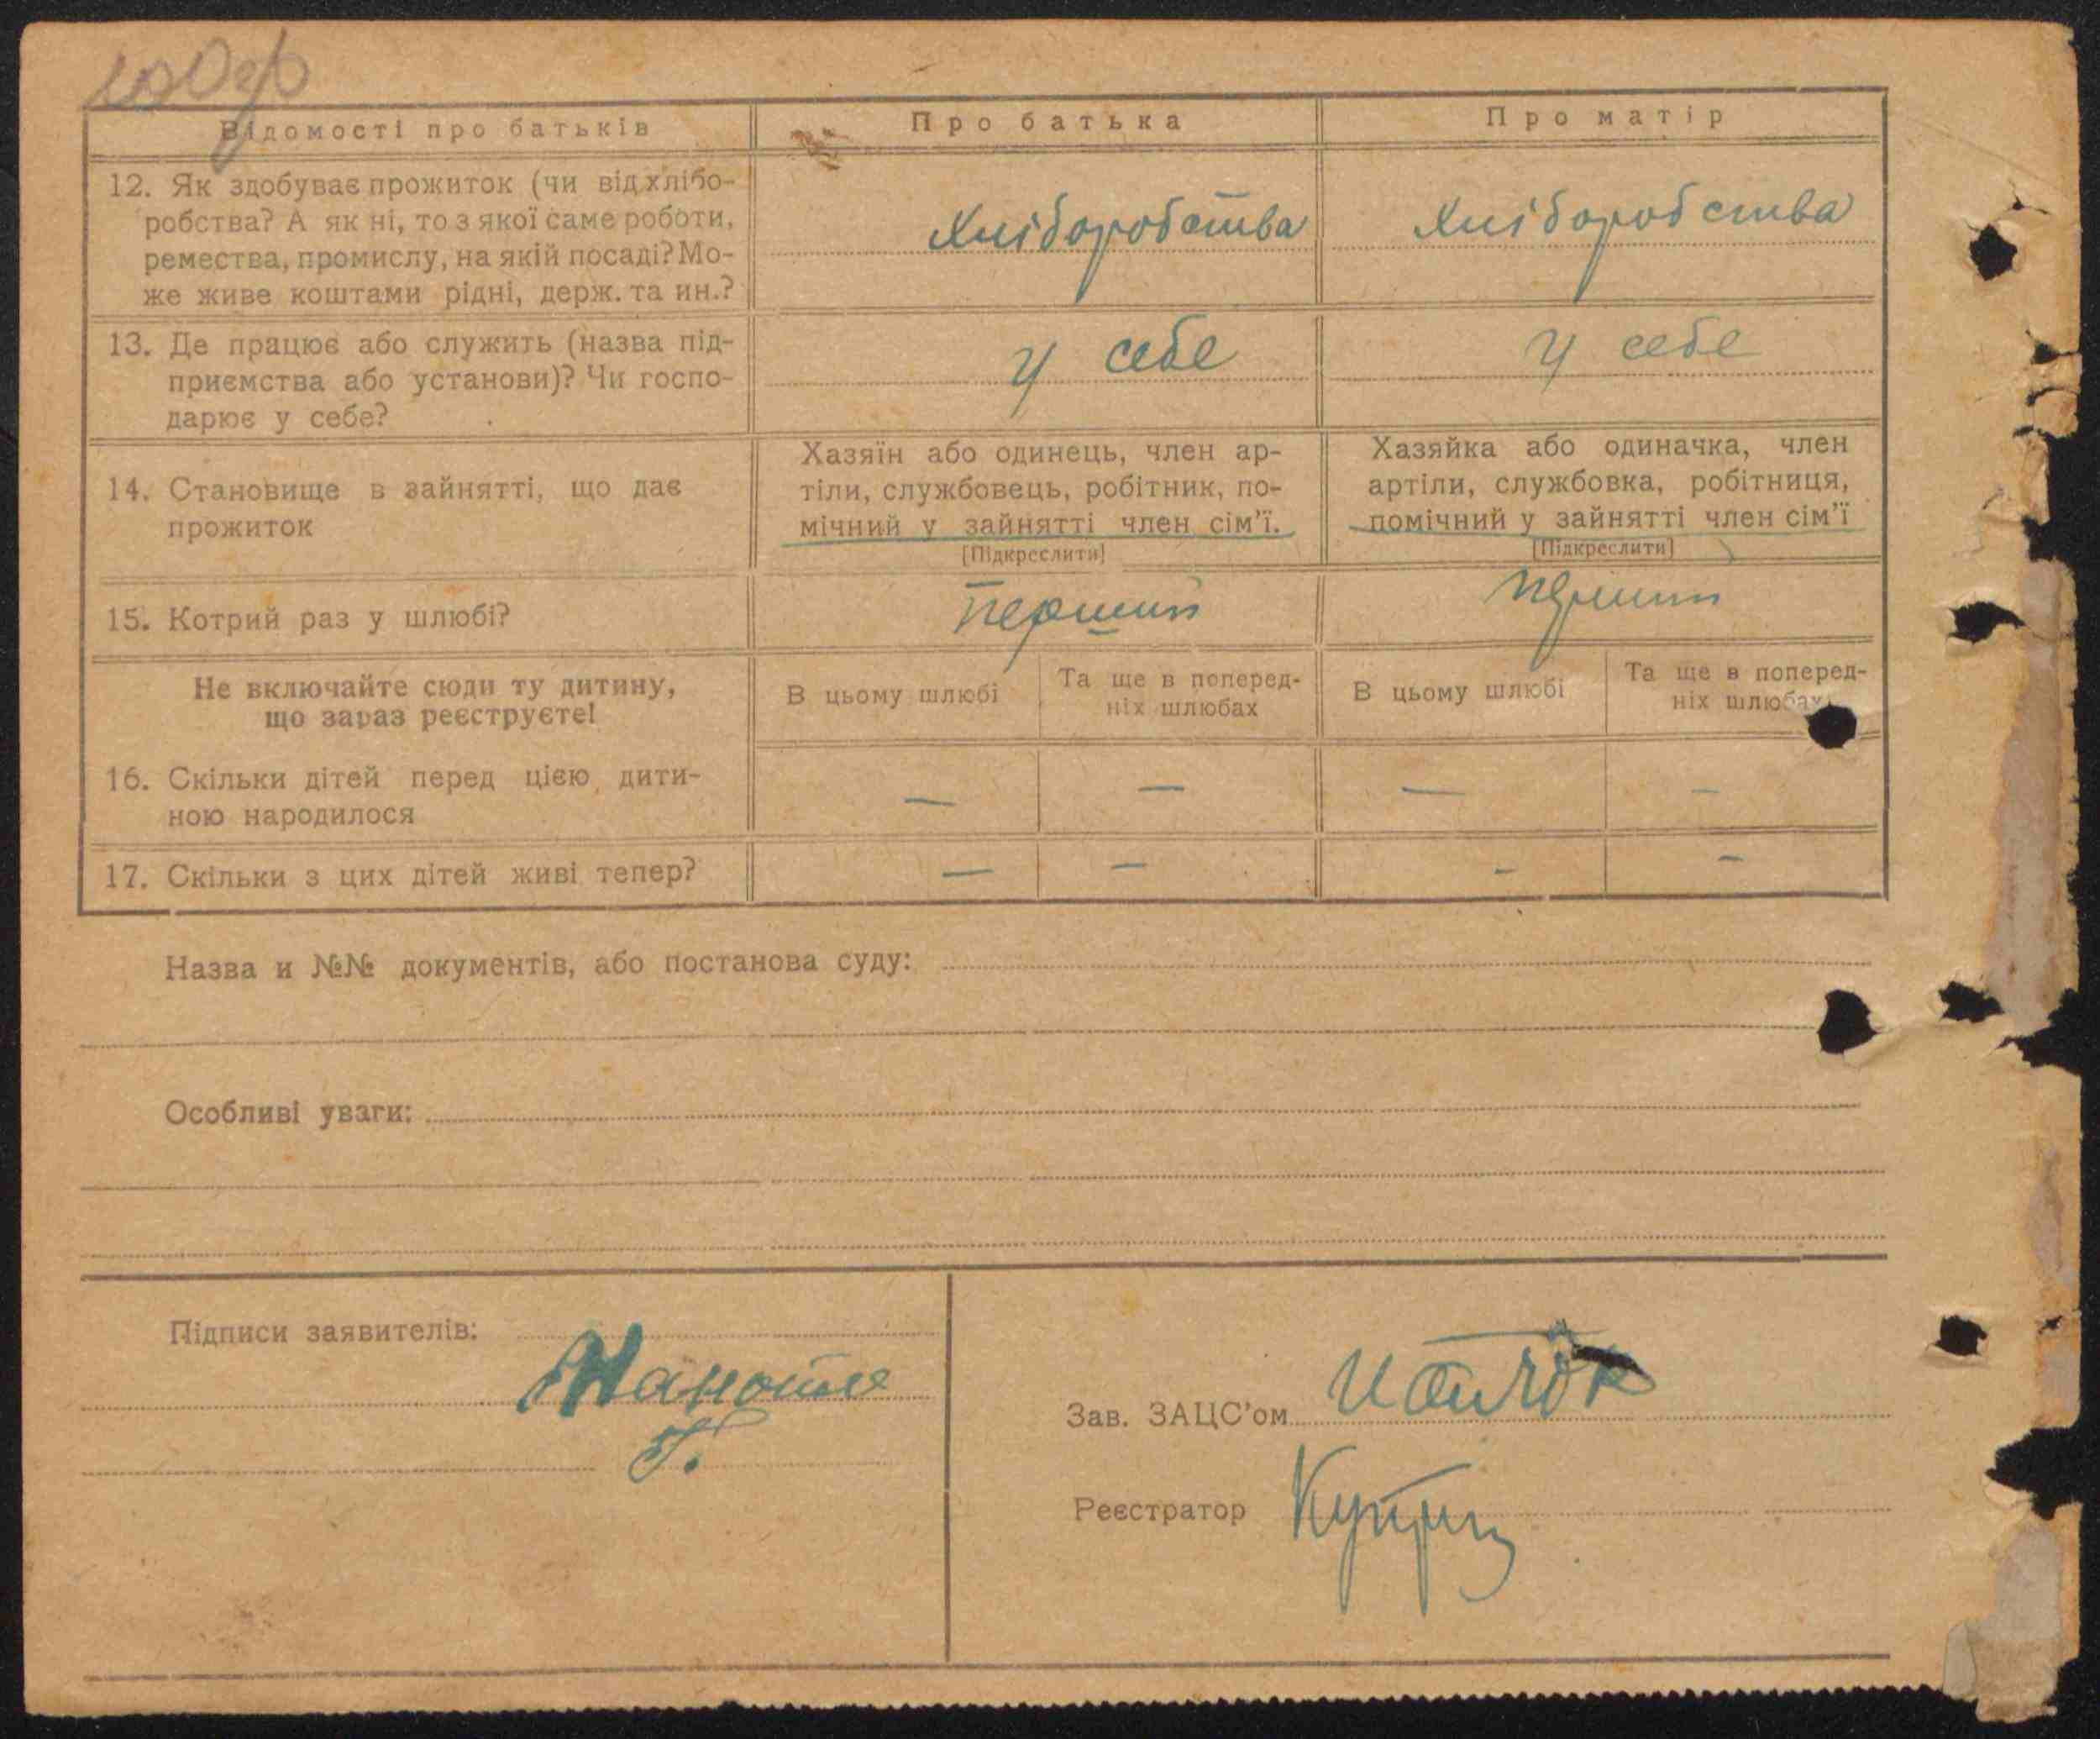 Відомості про батьків
Про батька
Про матір
12. Як здобуває прожиток (чи від хлібо-
робства? А як ні, то з якої саме роботи,
ремества, промислу, на якій посаді? Мо-
же живе коштами рідні, держ. та ин.?
Хліборобства
Хліборобства
13. Де працює або служить (назва під-
приємства або установи)? Чи госпо-
дарює у себе?
У себе
У себе
14. Становище в зайнятті, що дає
прожиток
Хазяїн або одинець, член ар-
тіли, службовець, робітник, по-
мічний у зайнятті член сім’ї.
[Підкреслити]
Хазяйка або одиначка, член
артіли, службовка, робітниця,
помічний у зайнятті член сім’ї
[Підкреслити]
15. Котрий раз у шлюбі?
Перший
Перший
Не включайте сюди ту дитину,
що зараз реєструєте!
В цьому шлюбі
Та ще в поперед-
ніх шлюбах
В цьому шлюбі
Та ще в поперед-
ніх шлюбах
16. Скільки дітей перед цією дити-
ною народилося
— — — —
17. Скільки з цих дітей живі тепер?
— — - -
Назва и №№ документів, або постанова суду:
Особливі уваги:
Підписи заявителів:
Зав. ЗАЦС’ом
Реєстратор